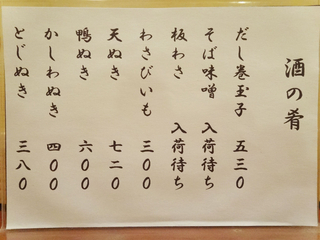 酒の肴
だし巻玉子 五三0
そば味噌 入荷待ち
板わさ 入荷待ち
わさびいも 三00
天ぬき 七二0
鴨ぬき 六00
かしわぬき 四00
とじぬき 三八0